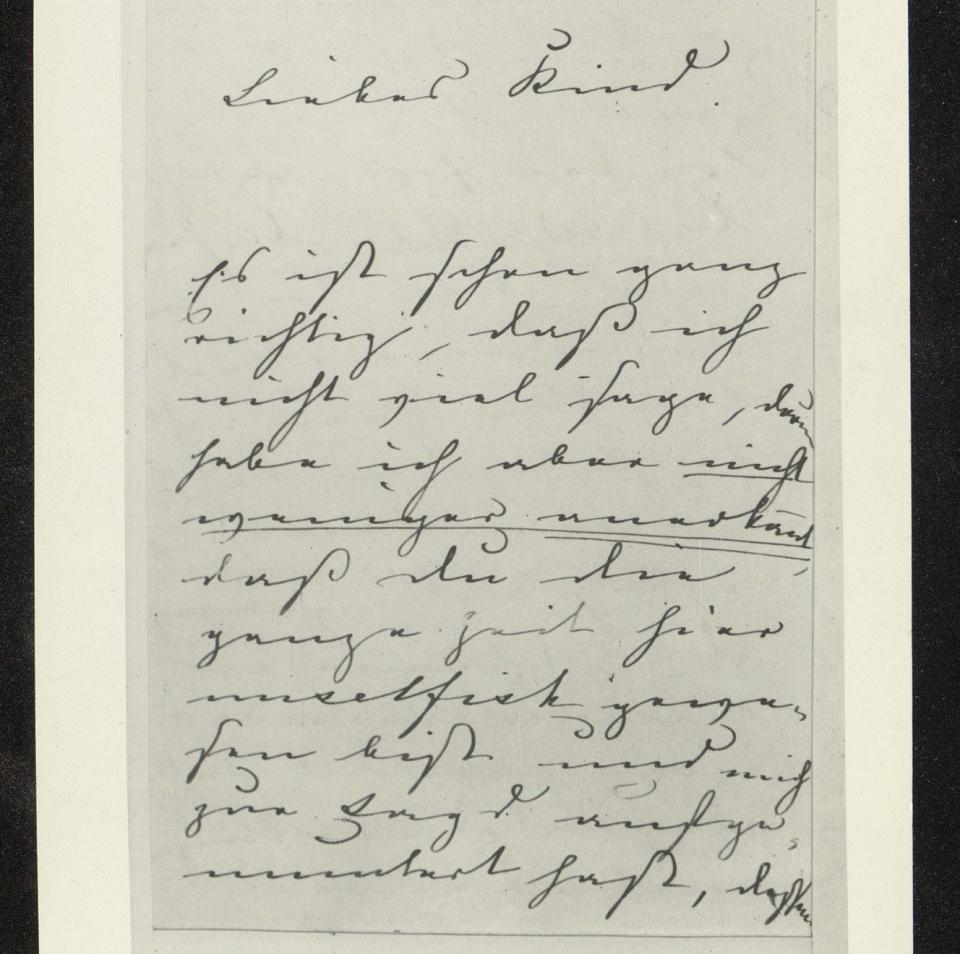 Liebes Kind.
Es ist schon ganz
richtig, daß ich
nicht viel sage, drum
habe ich aber nicht
weniger anerkannt,
daß du die
ganze Zeit hier
unselfish gewe-
sen bist und mich
zur Jagd aufge-
muntert hast, dessen